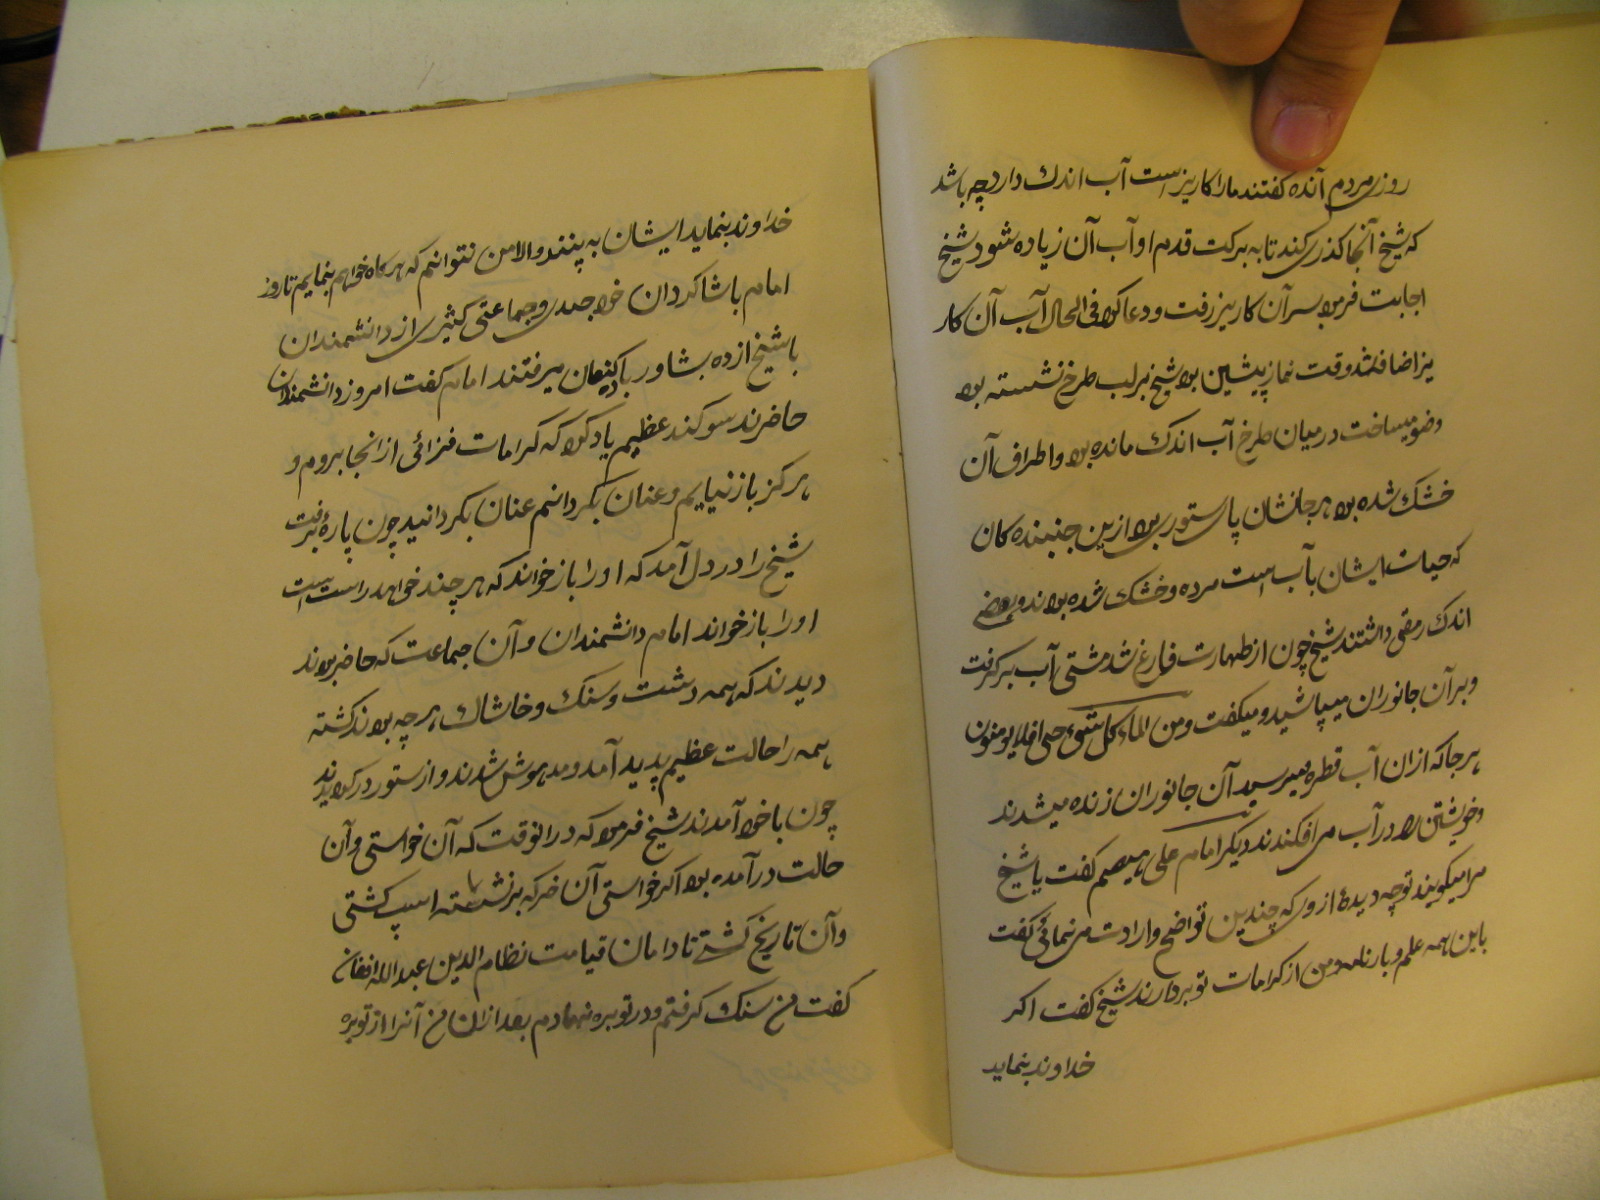 روزی مردم آنده گفتند مارا کاریز است آب اندک دارد چه باشد
که شیخ آنجا گذری کند تا به برکت قدم او آب آن زیاده شود شیخ
اجابت فرمود بسر آن کاریز رفت و دعا کرد فی الحال آب آن کار
یز اضافه شد وقت نماز پیشین بود شیخ بر لب طرخ نشسته بود
وضو میساخت در میان طرخ آب اندک مانده بود و اطراف آن
خشک شده بود هر جا نشان پای ستوری بود ازین جنبنده کان
که حیات ایشان بآب است مرده و خشک شده بودند و بعضی
اندک رمقی داشتند شیخ چون از طهارت فارغ شد مشتی آب برگرفت
و بر آن جانوران میپاشید و میگفت ومن الماء کل شئ حی افلا یومنون
هر جا که ازان آب قطره میرسید آن جانوران زنده میشدند
و خویشتن را در آب می افکندند دیگر امام علی هیصم گفت یا شیخ
مرا میگویند تو چه دیدهٔ از وی که چندین تواضع و ارادت می نمائی گفت
باین همه علم و بارنامه من از کرامات تو بردارند شیخ گفت اگر
خداوند بنماید
خداوند بنماید ایشان به بینند والا من نتوانم که هرگاه خواهم بنمایم تا روز
امام با شاگردان خود جمدی و جماعتی کثیری از دانشمندان
با شیخ از ده بشاور با میرفتند امام گفت امروز دانشمندان
حاضرند سوگند عظیم یاد کرد که کرامات فزائی از انجا بروم و
هرگز باز نیایم و عنان بگردانم عنان بگردانید چون پارهٔ برفت
شیخ را در دل آمد که او را باز خواند که هر چند خواهد راست است
او را باز خواند امام دانشمندان و آن جماعت که حاضر بودند
دیدند که همه دشت و سنک و خاشاک هر چه بودند گشته
همه را حالت عظیم پدید آمد و مدهوش شدند و از ستور در گردیدند
چون با خود آمدند شیخ فرمود که در انوقت که آن خواستی و آن
حالت در آمده بود اگر خواستی آن خر که برنشسته اسپ گشتی
و آن تاریخ گشتی تا دامان قیامت نظام الدین عبدالله افغان
گفت من سنک گرفتم و در توبره نهادم بعد ازان من آنرا از توبره